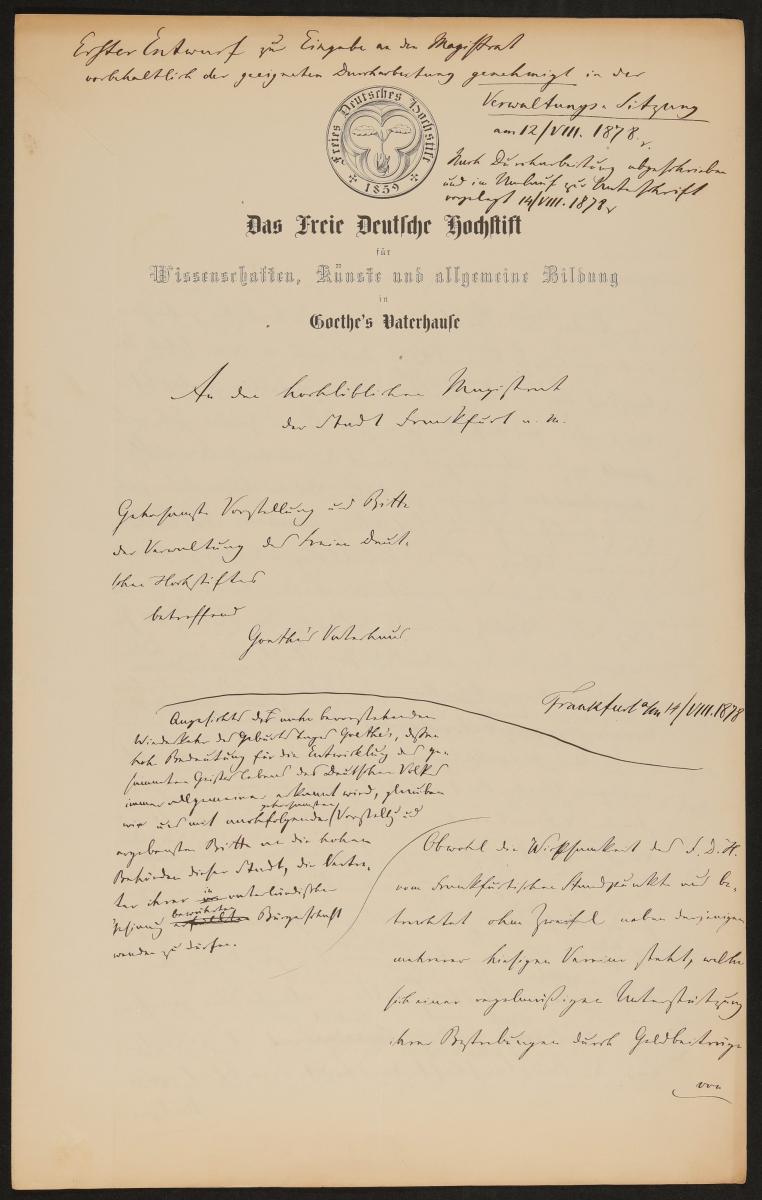 Erster Entwurf zur Eingabe an den Magistrat
vorbehaltlich der geeigneten Durcharbeitung genehmigt in der
Verwaltungs-Sitzung
am 12/VIII. 1878.
Nach Durcharbeitung abgeschrieben
und in Umlauf zur Unterschrift
vorgelegt 14/VIII. 1878
Freies Deutsches Hochstift
1859
Das Freie Deutsche Hochstift
für
Wissenschaften, Künste und allgemeine Bildung
in
Goethe's Vaterhause
An den hochlöblichen Magistrat
der Stadt Frankfurt a. M.
Gehorsamste Vorstellung und Bitte
der Verwaltung des Freien Deut-
schen Hochstiftes
betreffend
Goethe's Vaterhaus
Frankfurt a/m 14/VIII. 1878
Angesichts der nahe bevorstehenden
Wiederkehr des Geburtstages Goethe's, dessen
hohe Bedeutung für die Entwicklung des ge-
sammten Geisteslebens des Deutschen Volks
immer allgemeiner erkannt wird, glauben
wir uns mit nachfolgender gehorsamsten Vorstellg und
ergebensten Bitte an die hohen
Behörden dieser Stadt, die Vertre-
ter ihrer in vaterländischer
Gesinnung bewährten Bürgerschaft
wenden zu dürfen.
Obwohl die Wirksamkeit des F. D. H.
vom Frankfurtischen Standpunkte aus be-
trachtet ohne Zweifel neben derjenigen
mehrerer hiesigen Vereine steht, welche
sich einer regelmäßigen Unterstützung
ihrer Bestrebungen durch Geldbeiträge
von